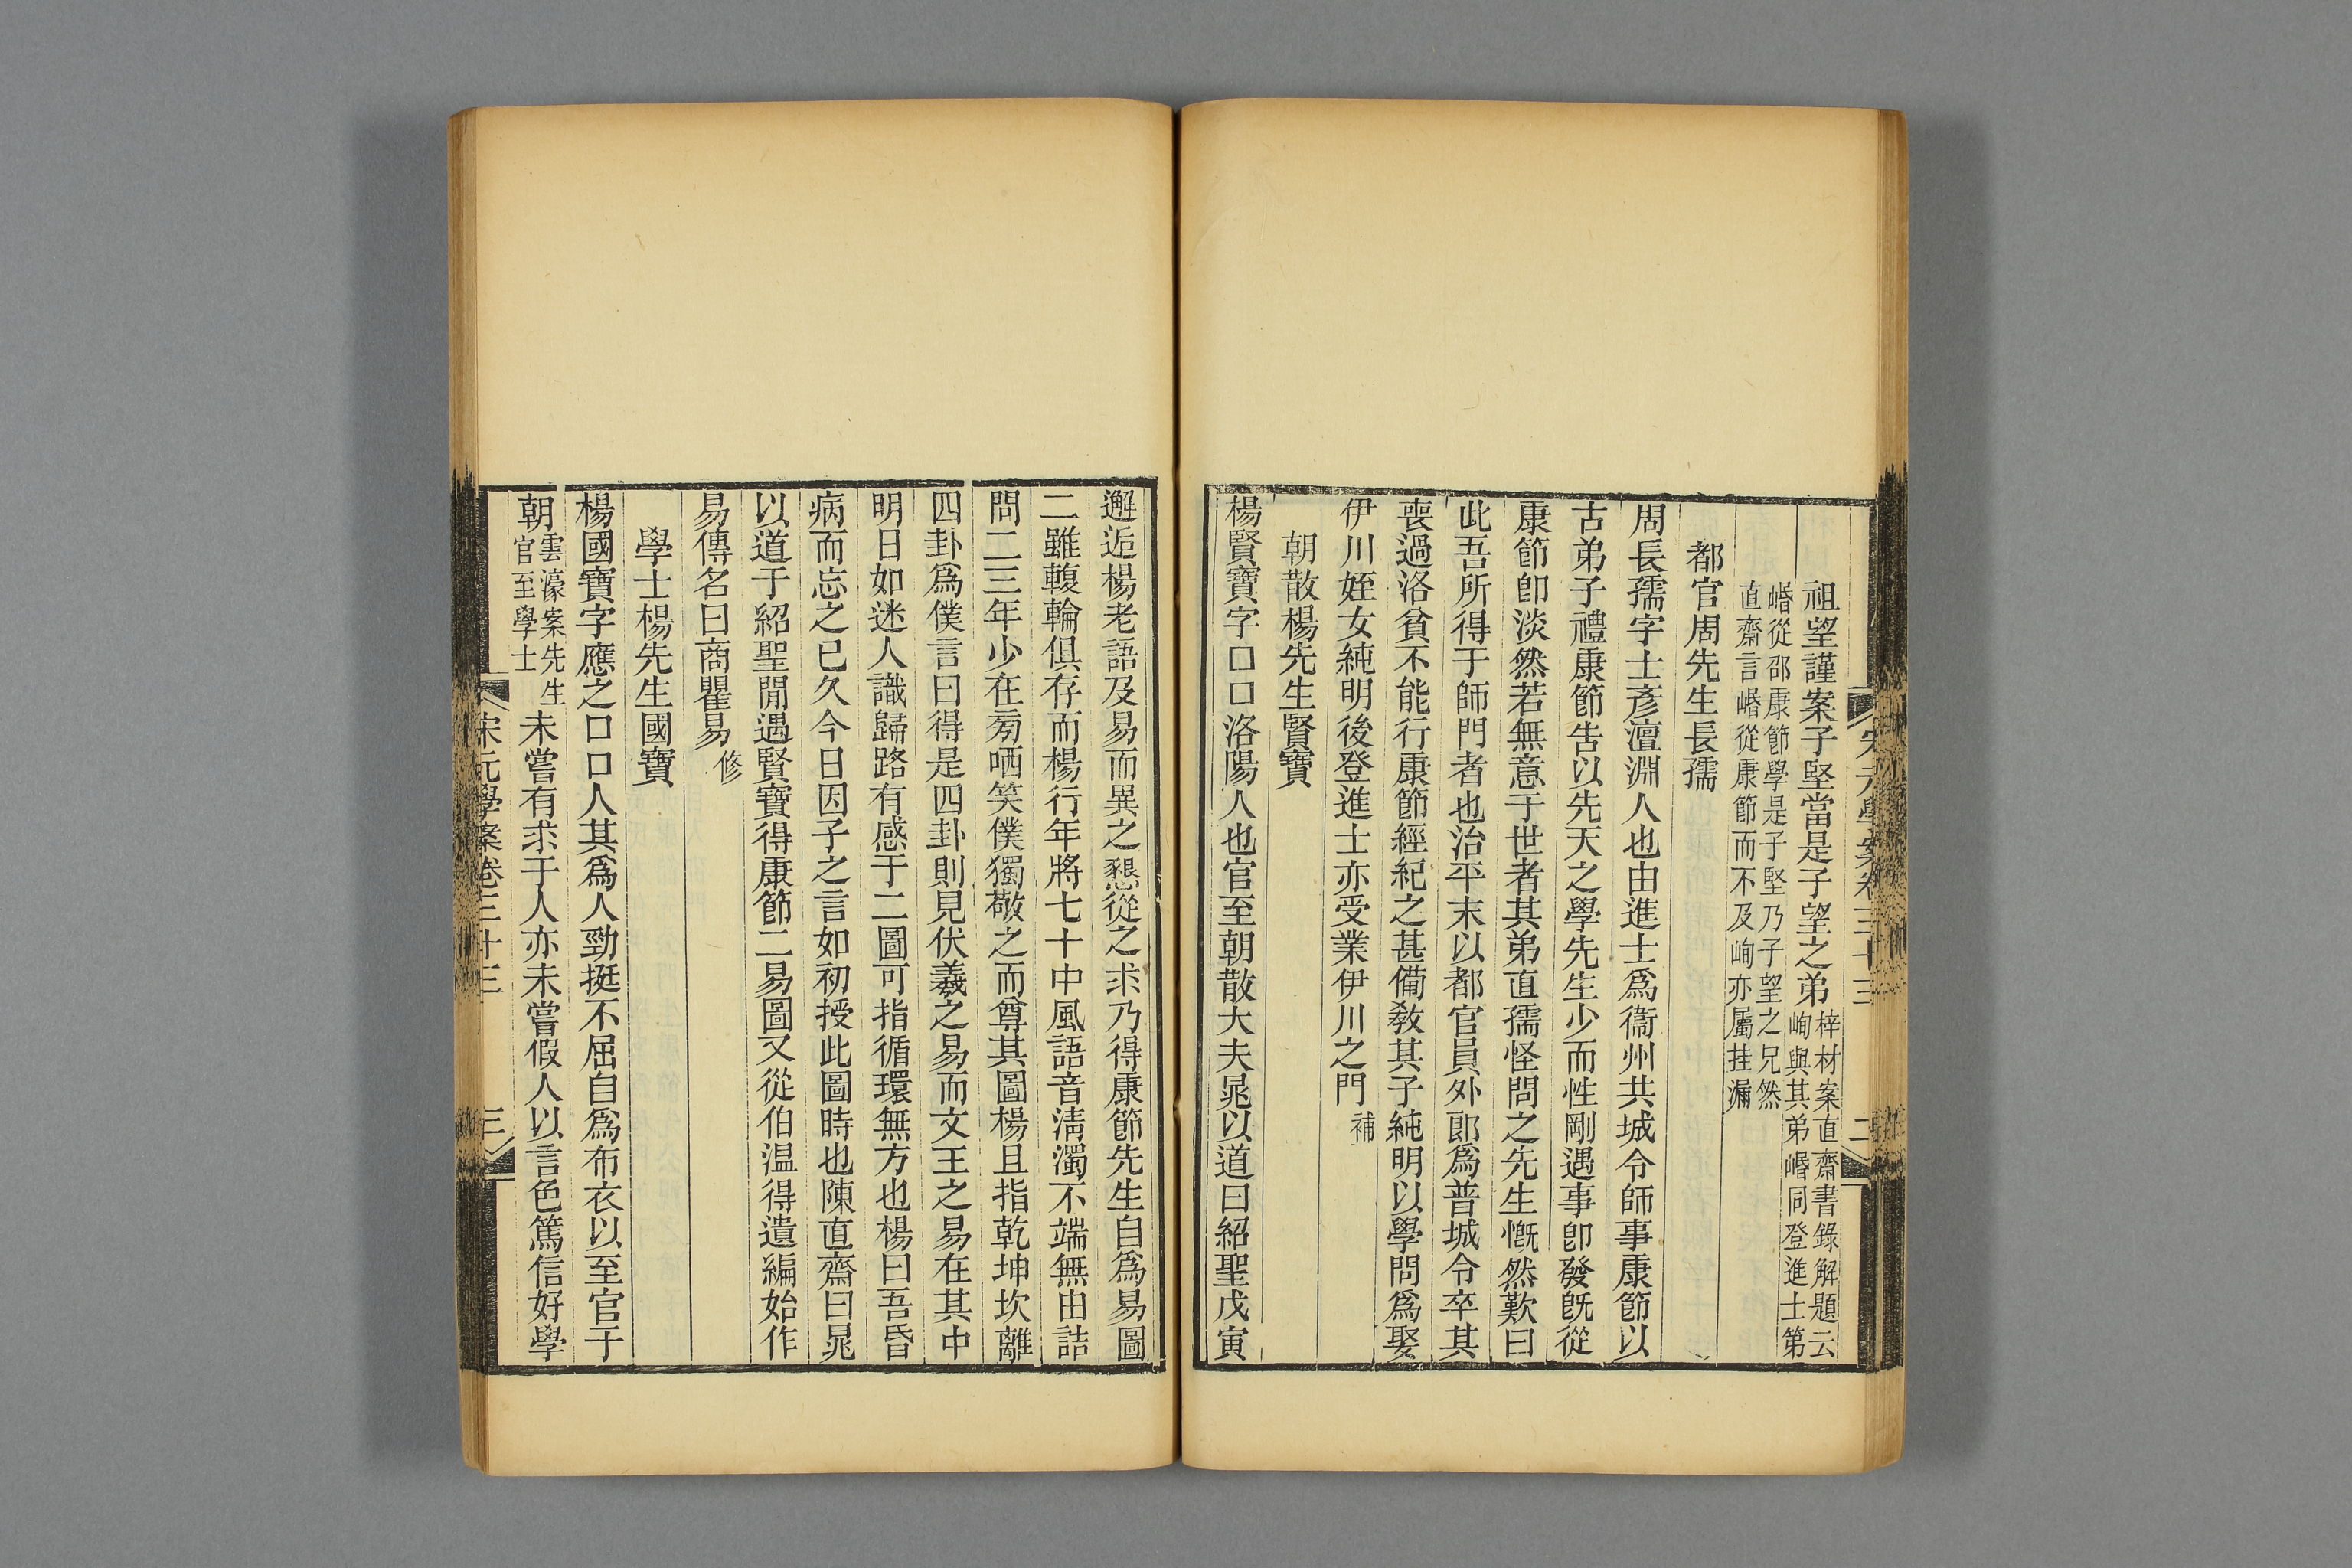 宋元學案卷三十三 二
祖望謹案子堅當是子望之弟梓材案直齋書錄解題云
峋與其弟㟭同登進士第
㟭從邵康節學是子堅乃子望之兄然
直齋言㟭從康節而不及峋亦屬挂漏
都官周先生長孺
周長孺字士彥澶淵人也由進士爲衞州共城令師事康節以
古弟子禮康節告以先天之學先生少而性剛遇事卽發旣從
康節卽淡然若無意于世者其弟直孺怪問之先生慨然歎曰
此吾所得于師門者也治平末以都官員外郎爲普城令卒其
喪過洛貧不能行康節經紀之甚備敎其子純明以學問爲娶
伊川姪女純明後登進士亦受業伊川之門補
朝散楊先生賢寶
楊賢寶字口口洛陽人也官至朝散大夫晁以道曰紹聖戊寅
邂逅楊老語及易而異之懇從之求乃得康節先生自爲易圖
二雖輹輪俱存而楊行年將七十中風語音淸濁不端無由詰
問二三年少在旁哂笑僕獨敬之而尊其圖楊且指乾坤坎離
四卦爲僕言曰得是四卦則見伏羲之易而文王之易在其中
明日如迷人識歸路有感于二圖可指循環無方也楊曰吾昏
病而忘之已久今日因子之言如初授此圖時也陳直齋曰晁
以道于紹聖閒遇賢寶得康節二易圖又從伯温得遺編始作
易傳名曰商瞿易修
學士楊先生國寶
楊國寶字應之口口人其爲人勁挺不屈自爲布衣以至官于
朝雲濠案先生
官至學士
未嘗有求于人亦未嘗假人以言色篤信好學
宋元學案卷三十三 三